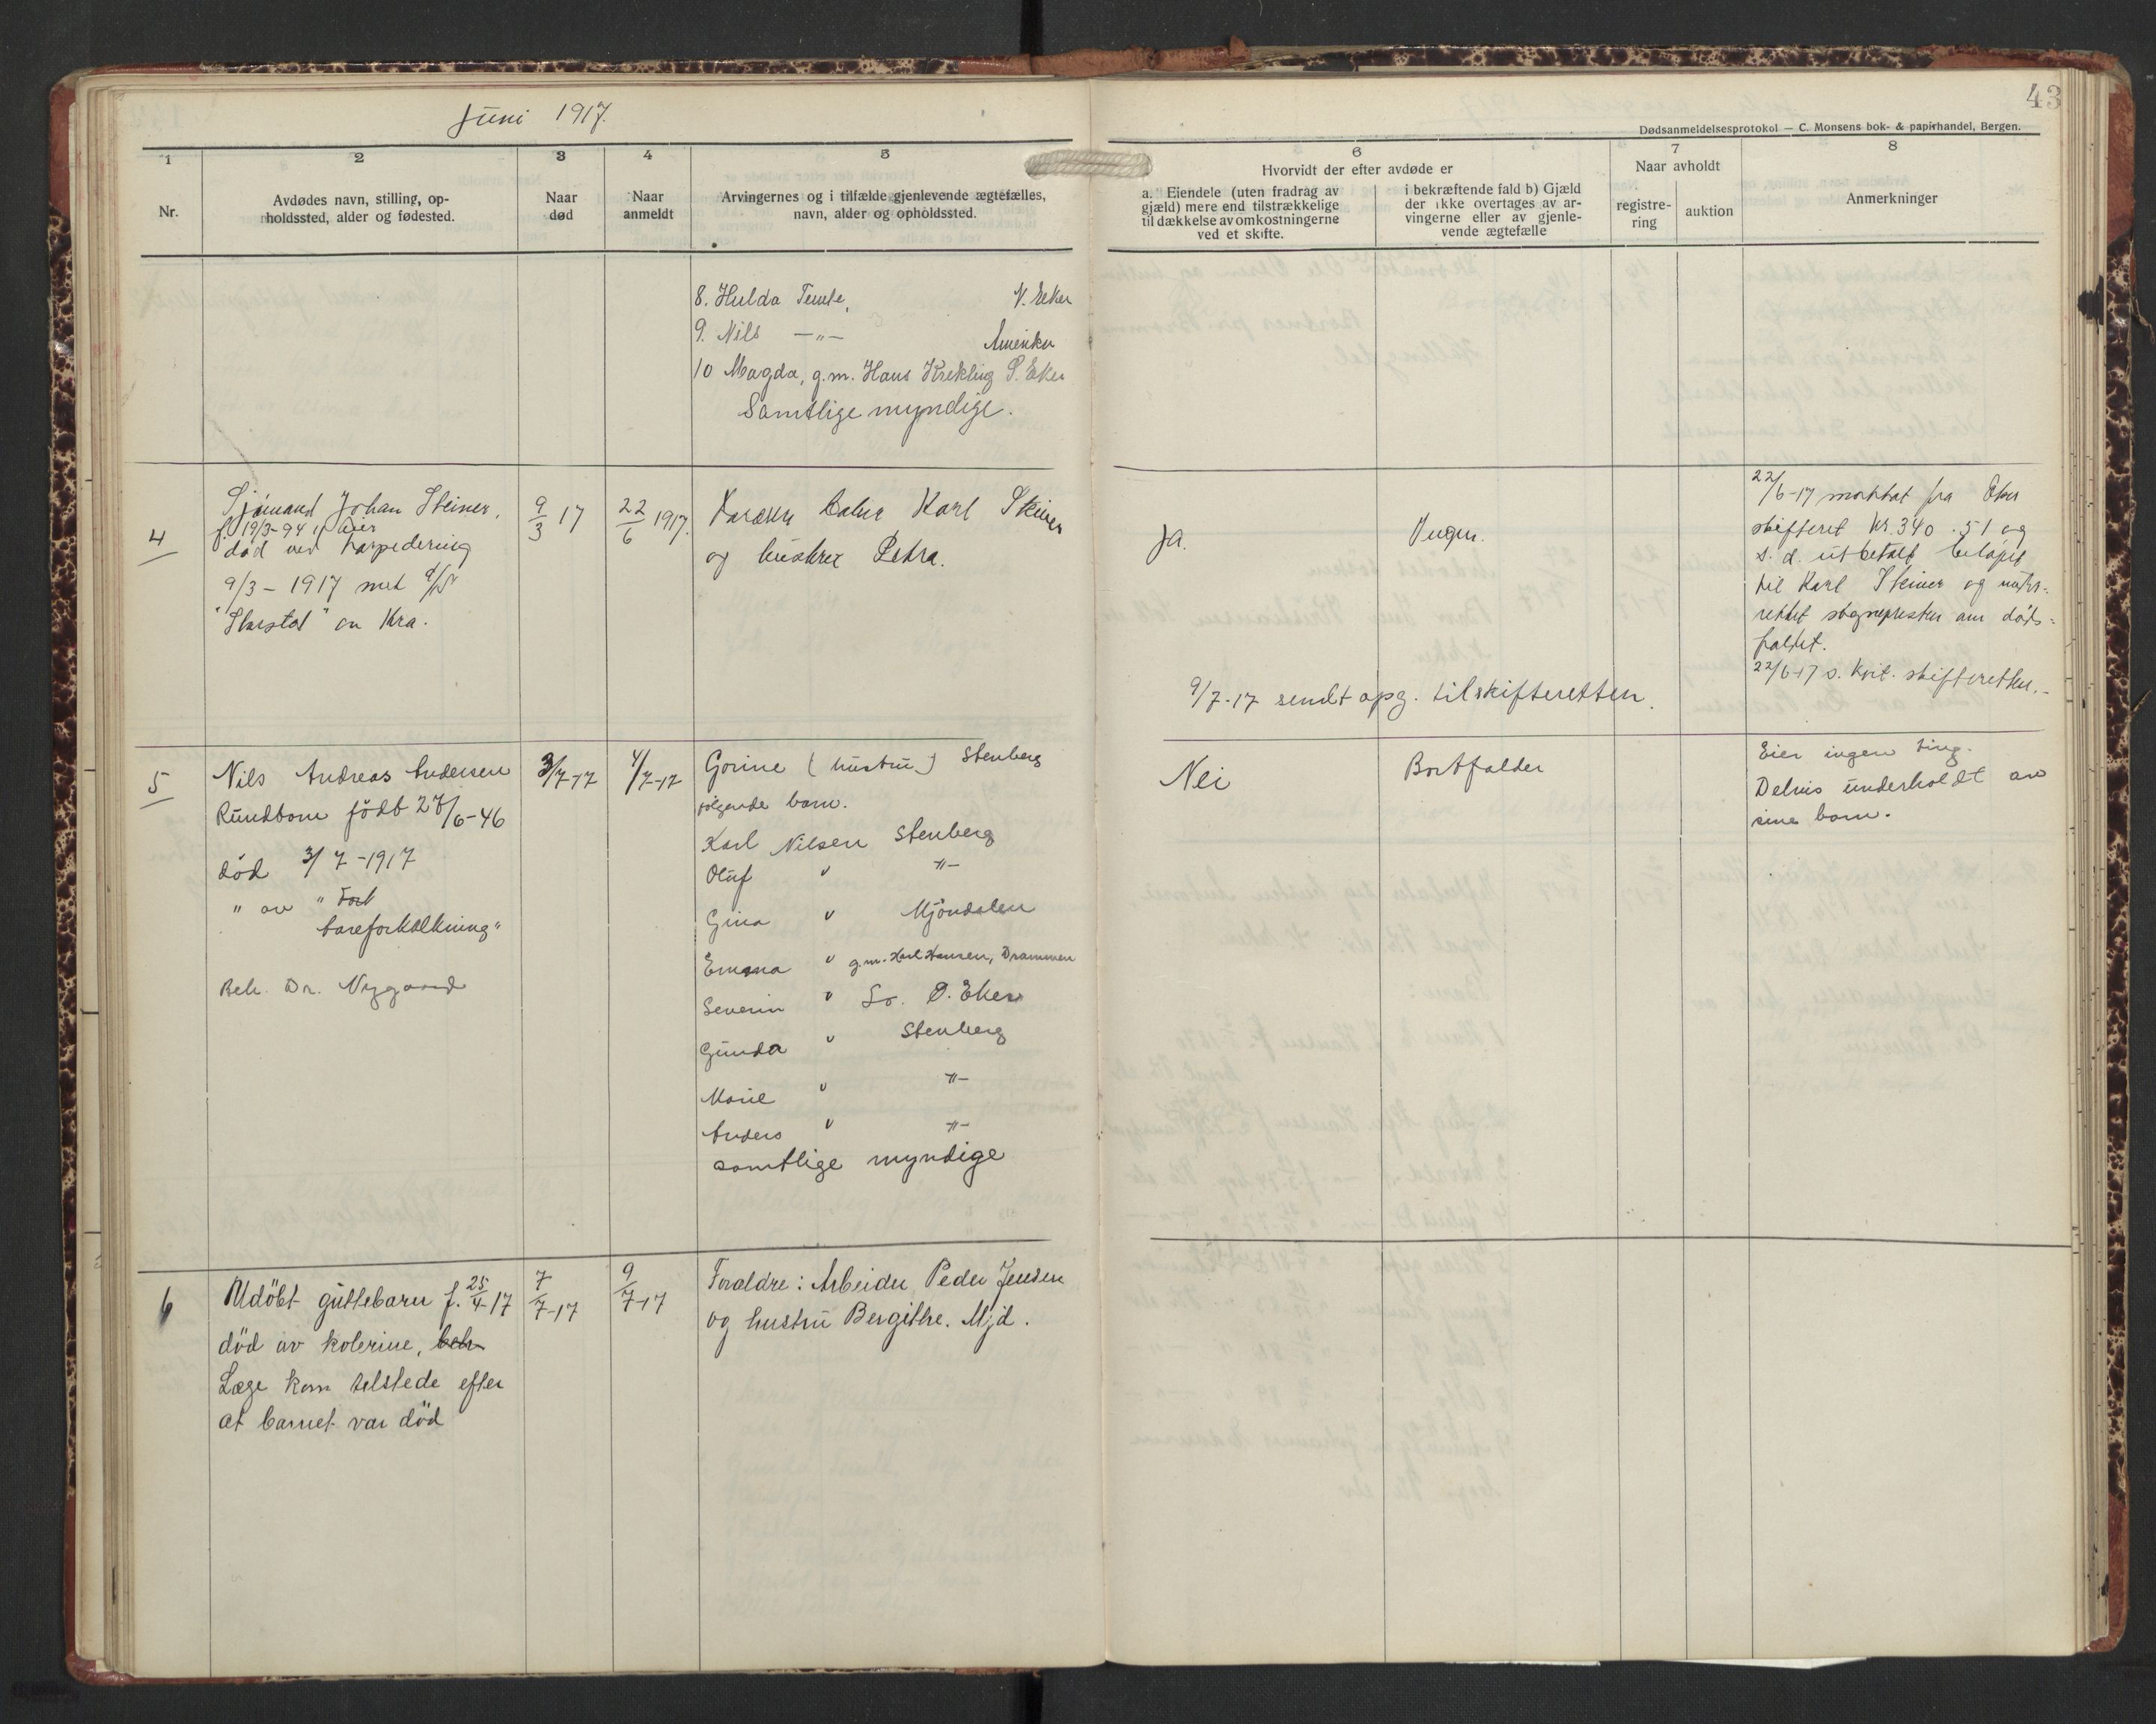 Juni 1917.
43
Dødsanmeldelsesprotokol — C. Monsens bok- & papirhandel, Bergen.
1
Nr.
2
Avdødes navn, stilling, op-
holdssted, alder og fødested.
3
Naar
død
4
Naar
anmeldt
5
Arvingernes og i tilfælde gjenlevende ægtefælles,
navn, alder og opholdssted.
6
Hvorvidt der efter avdøde er
a. Eiendele (uten fradrag av
gjæld) mere end tilstrækkelige
til dækkelse av omkostningerne
ved et skifte.
i bekræftende fald b) Gjæld
der ikke overtages av ar-
vingerne eller av gjenle-
vende ægtefælle
7
Naar avholdt
registre-
ring
auktion
8
Anmerkninger
8. Hulda Temte, N. Eker
9. Nils —"— Amerika
10 Magda, g.m. Hans Krekling S. Eker
Samtlige myndige.
4
Sjømand Johan Steiner,
f. 19/3-94
død ved torpedering
9/3 - 1917 met d/S
"Storstad" av Kra.
9/3 17
22/6 1917.
Karl Steiner
og hustru Petra.
Ja.
Ingen.
22/6-17 mottat fra Eker
skifteret kr. 340.51 og
s. d. utbetalt beløpet
til Karl Steiner og under-
rettet sognepresten om døds-
faldet.
22/6-17 s. kvit. skifteretten.-
9/7-17 sendt opg. til skifteretten.
5
Nils Andreas Andersen
Rundbom født 27/6-46
død 3/7-1917
" av "
areforkalkning"
Beh. Dr. Nygaard
3/7-17
4/7-17
Gorine (hustru) Stenberg
følgende barn.
Karl Nilsen Stenberg
Oluf " —"—
Gina " Mjøndalen
Emma " g.m. Karl Hansen, Drammen
Severin " Ø. Eker
Gunda " Stenberg
Marie " —"—
Anders " —"—
samtlige myndige
Nei
Bortfalder
Eier ingen ting.
Delvis underholdt av
sine barn.
6
Udøbt guttebarn f. 25/4-17
død av kolerine, beh
Læge kom tilstede efter
at barnet var død
7/7-17
9/7-17
Foræld­re: Arbeider Peder Jensen
og hustru Bergithe. Mjd.